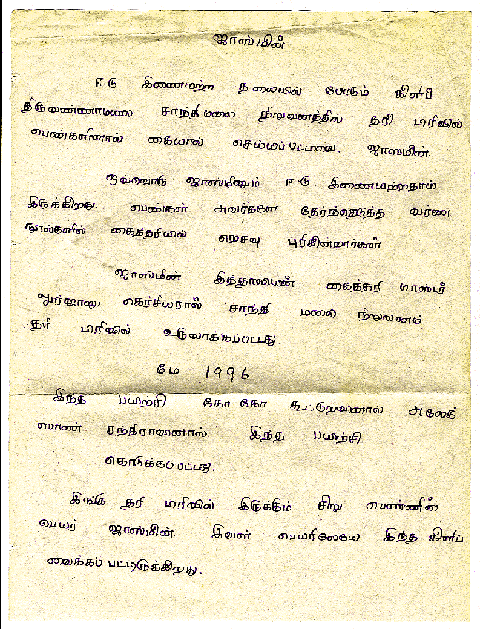 ஜாஸ்மின்
ஈடு இணையற்ற தலையில் போடும் கிளிப்
திருவண்ணாமலை சாந்திமலை நிறுவனத்தில் தறி மரிவில்
பெண்களினால் கையால் செய்யப்பட்டவை. ஜாஸ்மின்
ஒவ்வொரு ஜாஸ்மினும் ஈடு இணையற்றதாய்
இருக்கிறது. பெண்கள் அவர்களே தேர்ந்தெடுத்த வர்ண
நூல்களில் கைத்தறியில் நெசவு புரிகின்றார்கள்
ஜாஸ்மின் இந்தஸ்பெண் கைத்தறி மாஸ்டர்
சாந்தி மலை நிறுவனம்
தறி மரிவில் உருவாக்கப்பட்டது
மே 1996
இந்த பயிற்சி கோ கோ
இந்த பயிற்சி
கொடுக்கப்பட்டது.
இங்கு தறி மரிவில் இருக்கும் சிறு பெண்ணின்
பெயர் ஜாஸ்மின். இவள் பெயரிலேயே இந்த கிளிப்
வைக்கப் பட்டிருக்கிறது.